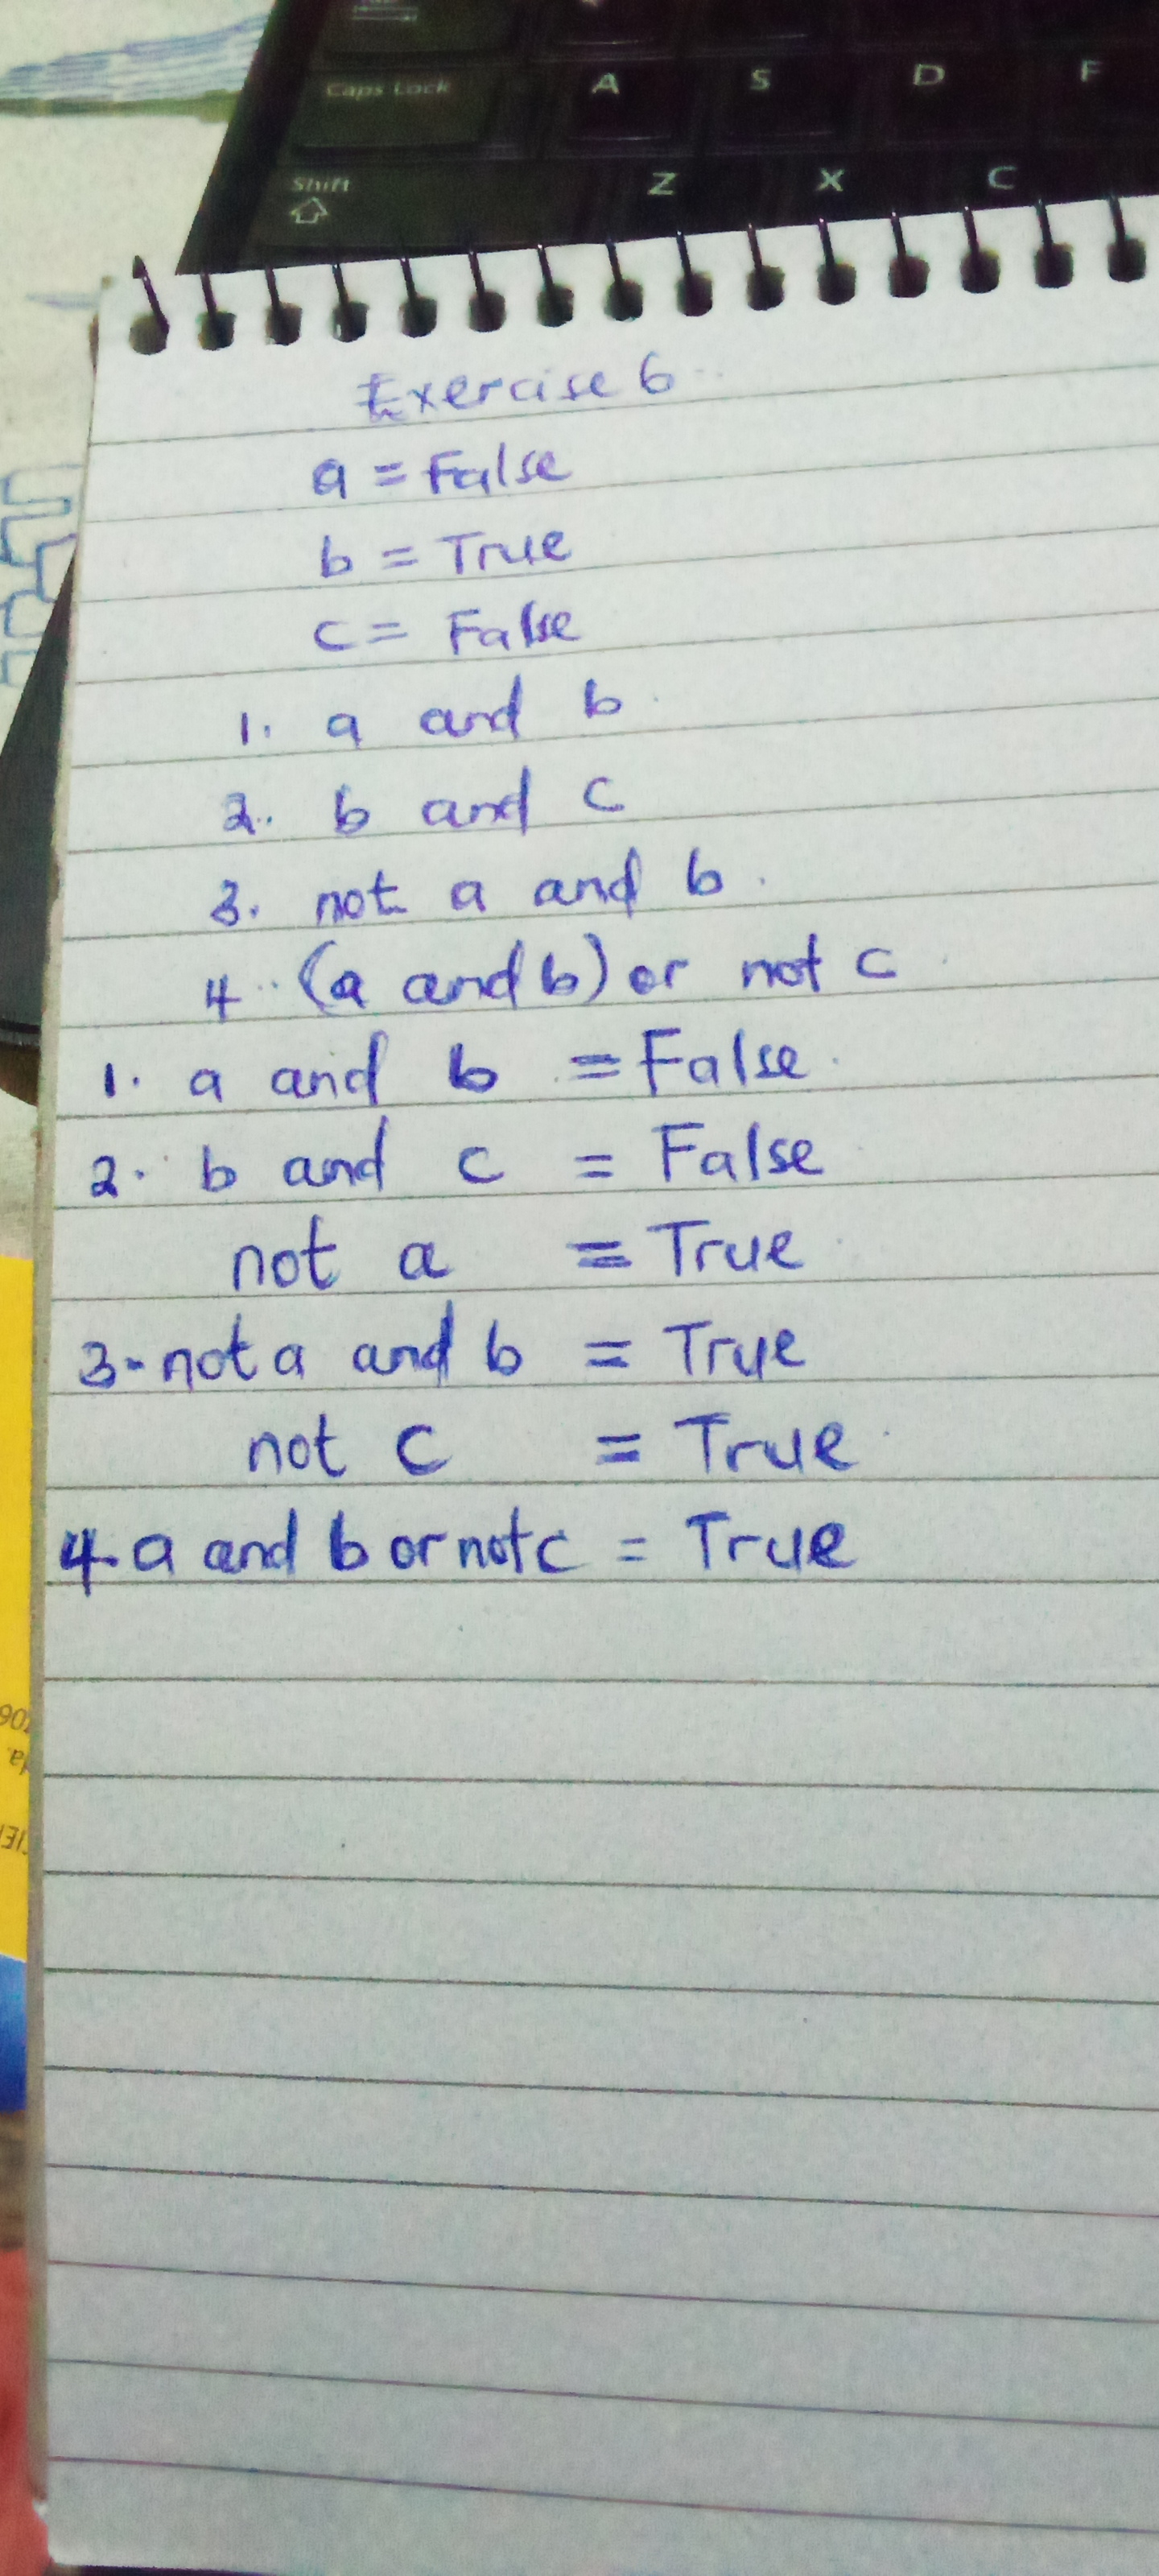 Caps Lock
A
S
D
F
Shift
Z
X
C
Exercise 6
a = False
b = True
c = False
1. a and b
2. b and c
3. not a and b
4. (a and b) or not c
1. a and b = False
2. b and c = False
not a = True
3. not a and b = True
not c = True
4. a and b or not c = True